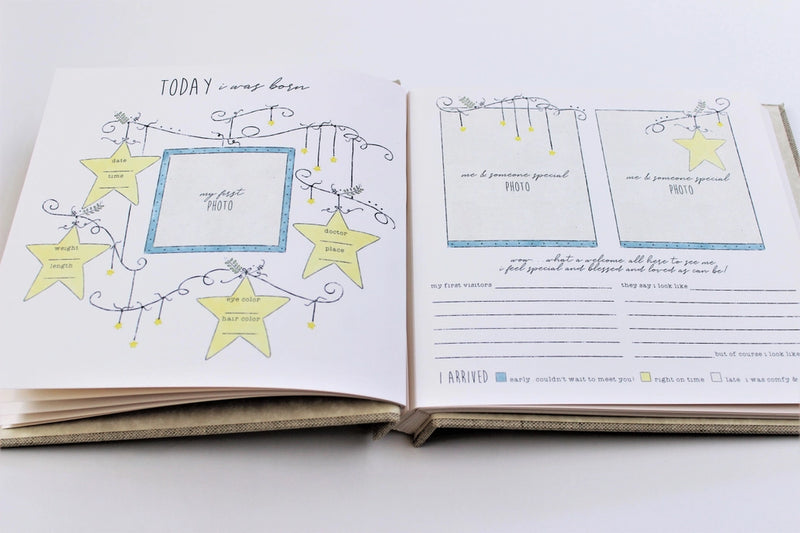 TODAY i was born
date
time
my first
PHOTO
weight
length
doctor
place
eye color
hair color
me & someone special
PHOTO
me & someone special
PHOTO
wow... what a welcome all here to see me
i feel special and blessed and loved as can be!
my first visitors
they say i look like
but of course i look like
I ARRIVED early couldn't wait to meet you! right on time late i was comfy &